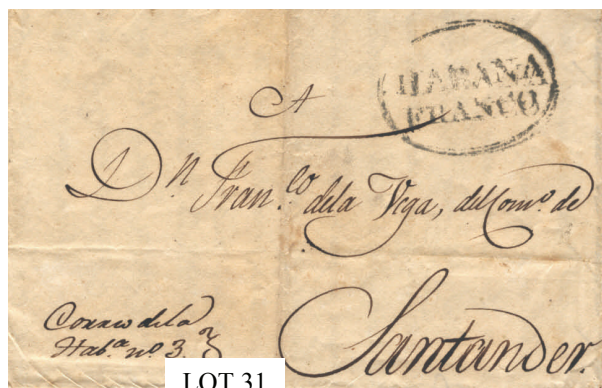 HABANA
FRANCO
A
Dn Franco dela Vega, del Como de
Santander.
Correo dela
Haba no 3
LOT 31